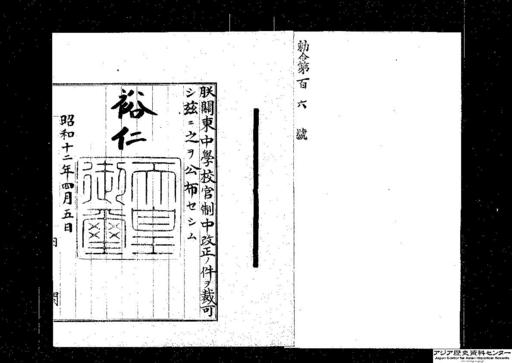 勅令第百六號
朕關東中學校官制中改正ノ件ヲ裁可
シ玆ニ之ヲ公布セシム
裕仁
天皇御璽
昭和十二年四月五日
内閣
アジア歴史資料センター
Japan Center for Asian Historical Records